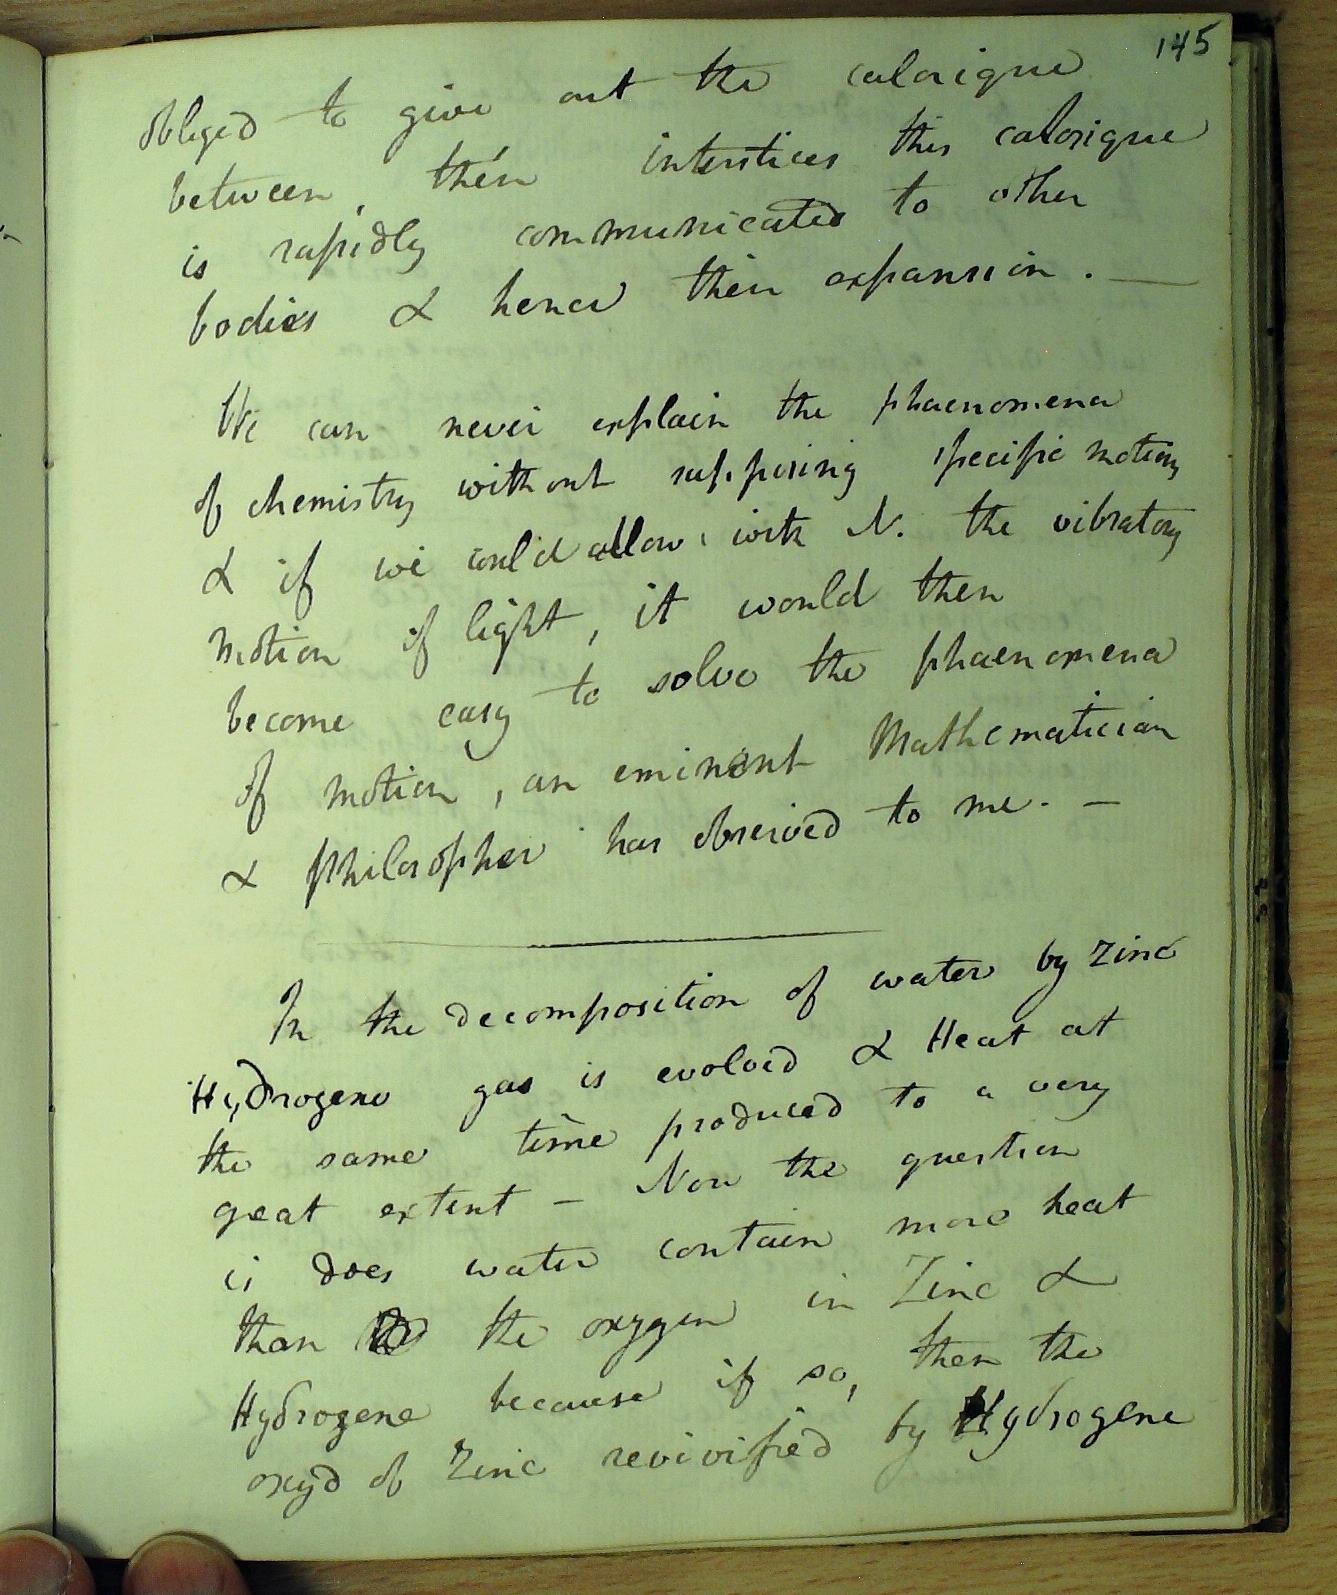 145
obliged to give out the calorique
between, their interstices this calorique
is rapidly communicated to other
bodies & hence their expansion. —
We can never explain the phaenomena
of chemistry without supposing specific motions
& if we could allow with N. the vibratory
motion of light, it would then
become easy to solve the phaenomena
of motion, an eminent Mathematician
& Philosopher has observed to me. —
In the decomposition of water by Zinc
Hydrogene gas is evolved & Heat at
the same time produced to a very
great extent — Now the question
is does water contain more heat
than the oxygen in Zinc &
Hydrogene because if so, then the
oxyd of Zinc revivified by Hydrogene